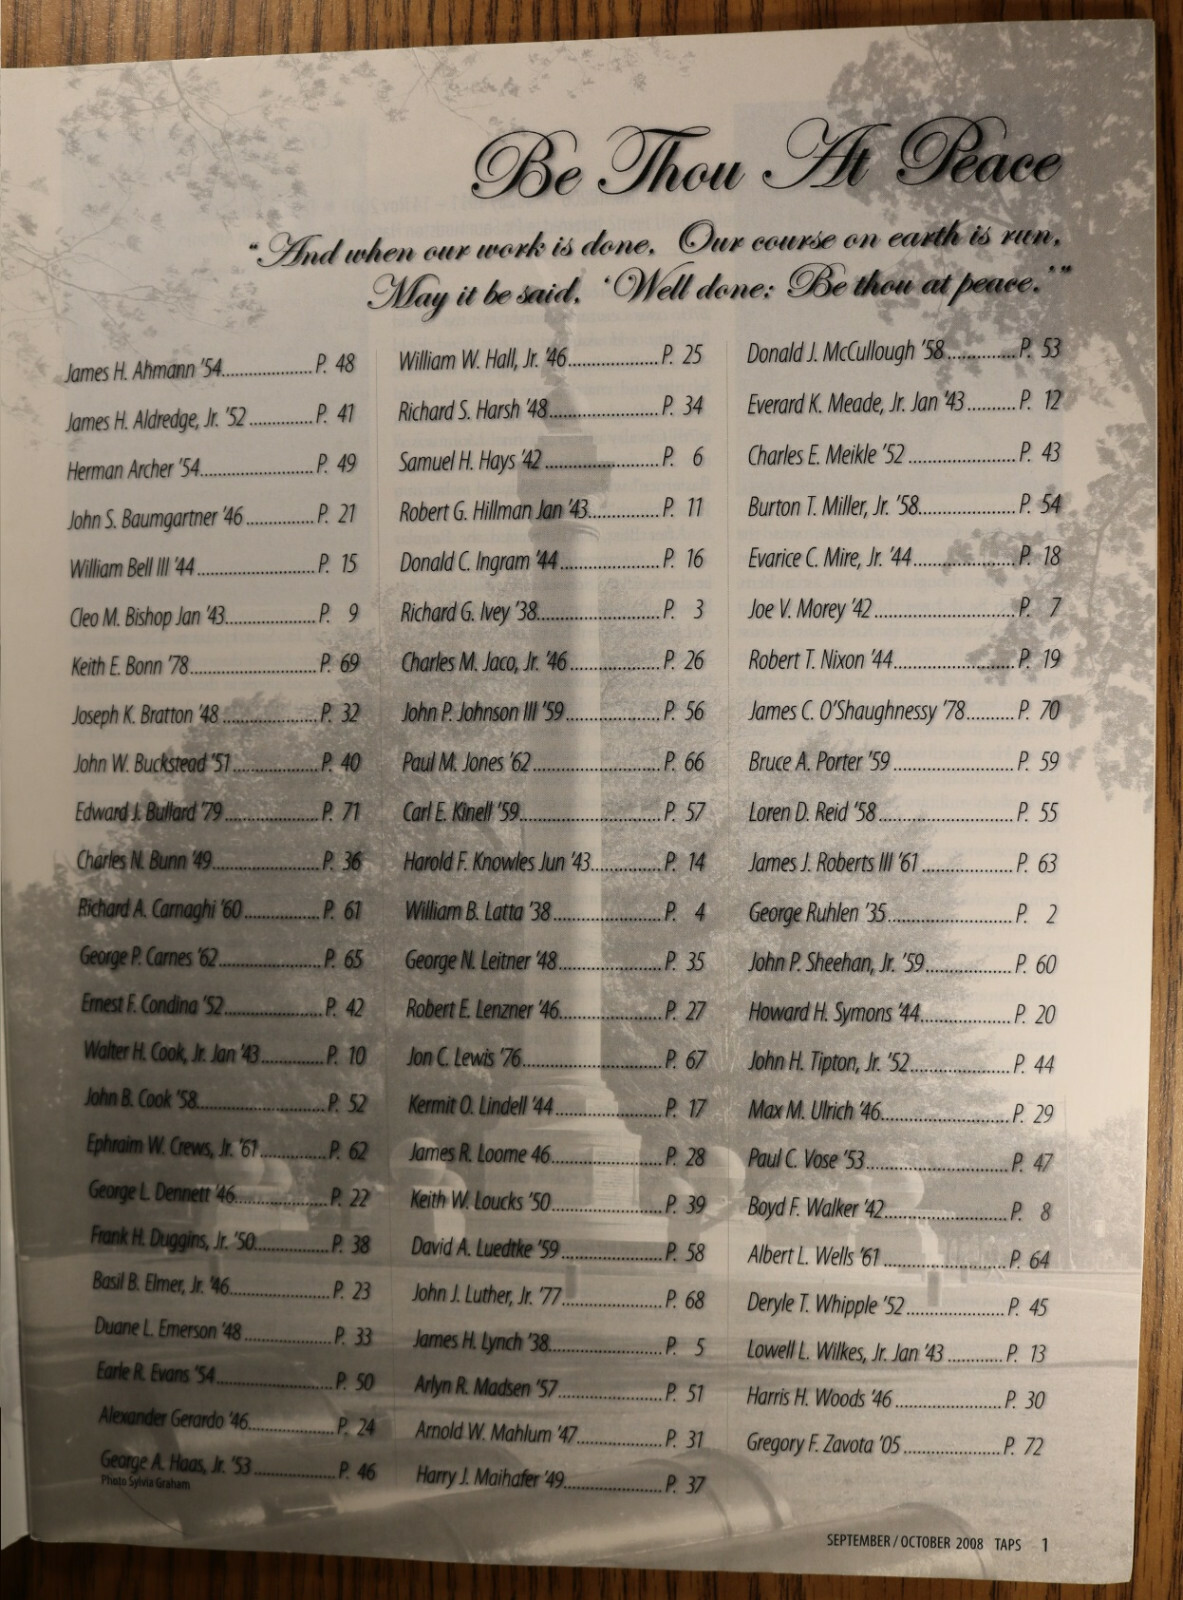 Be Thou At Peace
"And when our work is done, Our course on earth is run,
May it be said, 'Well done; Be thou at peace.'"
James H. Ahmann '54....................P. 48
James H. Aldredge, Jr. '52..............P. 41
Herman Archer '54...............................P. 49
John S. Baumgartner '46...............P. 21
William Bell III '44..........................P. 15
Cleo M. Bishop Jan '43....................P. 9
Keith E. Bonn '78.............................P. 69
Joseph K. Bratton '48.....................P. 32
John W. Buckstead '51...................P. 40
Edward J. Bullard '79.....................P. 71
Charles N. Bunn '49........................P. 36
Richard A. Carnaghi '60.................P. 61
George P. Carnes '62.......................P. 65
Ernest F. Condina '52......................P. 42
Walter H. Cook, Jr. Jan '43..............P. 10
John B. Cook '58.............................P. 52
Ephraim W. Crews, Jr. '61...............P. 62
George L. Dennett '46.....................P. 22
Frank H. Duggins, Jr. '50................P. 38
Basil B. Elmer, Jr. '46......................P. 23
Duane L. Emerson '48....................P. 33
Earle R. Evans '54..........................P. 50
Alexander Gerardo '46....................P. 24
George A. Haas, Jr. '53...................P. 46
Photo Sylvia Graham
William W. Hall, Jr. '46....................P. 25
Richard S. Harsh '48........................P. 34
Samuel H. Hays '42..........................P. 6
Robert G. Hillman Jan '43................P. 11
Donald C. Ingram '44.......................P. 16
Richard G. Ivey '38...........................P. 3
Charles M. Jaco, Jr. '46....................P. 26
John P. Johnson III '59.....................P. 56
Paul M. Jones '62.............................P. 66
Carl E. Kinell '59...............................P. 57
Harold F. Knowles Jun '43................P. 14
William B. Latta '38..........................P. 4
George N. Leitner '48.......................P. 35
Robert E. Lenzner '46.......................P. 27
Jon C. Lewis '76................................P. 67
Kermit O. Lindell '44........................P. 17
James R. Loome 46..........................P. 28
Keith W. Loucks '50..........................P. 39
David A. Luedtke '59........................P. 58
John J. Luther, Jr. '77.......................P. 68
James H. Lynch '38..........................P. 5
Arlyn R. Madsen '57.........................P. 51
Arnold W. Mahlum '47.....................P. 31
Harry J. Maihafer '49.......................P. 37
Donald J. McCullough '58................P. 53
Everard K. Meade, Jr. Jan '43...........P. 12
Charles E. Meikle '52........................P. 43
Burton T. Miller, Jr. '58.....................P. 54
Evarice C. Mire, Jr. '44......................P. 18
Joe V. Morey '42................................P. 7
Robert T. Nixon '44...........................P. 19
James C. O'Shaughnessy '78............P. 70
Bruce A. Porter '59...........................P. 59
Loren D. Reid '58..............................P. 55
James J. Roberts III '61.....................P. 63
George Ruhlen '35............................P. 2
John P. Sheehan, Jr. '59...................P. 60
Howard H. Symons '44.....................P. 20
John H. Tipton, Jr. '52.......................P. 44
Max M. Ulrich '46.............................P. 29
Paul C. Vose '53................................P. 47
Boyd F. Walker '42............................P. 8
Albert L. Wells '61............................P. 64
Deryle T. Whipple '52.......................P. 45
Lowell L. Wilkes, Jr. Jan '43.............P. 13
Harris H. Woods '46.........................P. 30
Gregory F. Zavota '05.......................P. 72
SEPTEMBER / OCTOBER 2008 TAPS 1